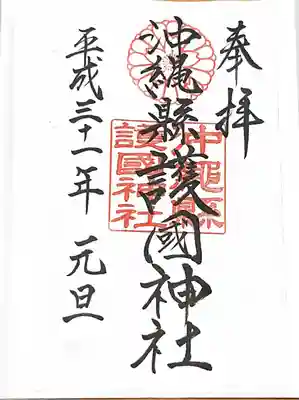 奉拝
沖縄縣護國神社
沖縄縣
護國神社
平成三十一年 元旦